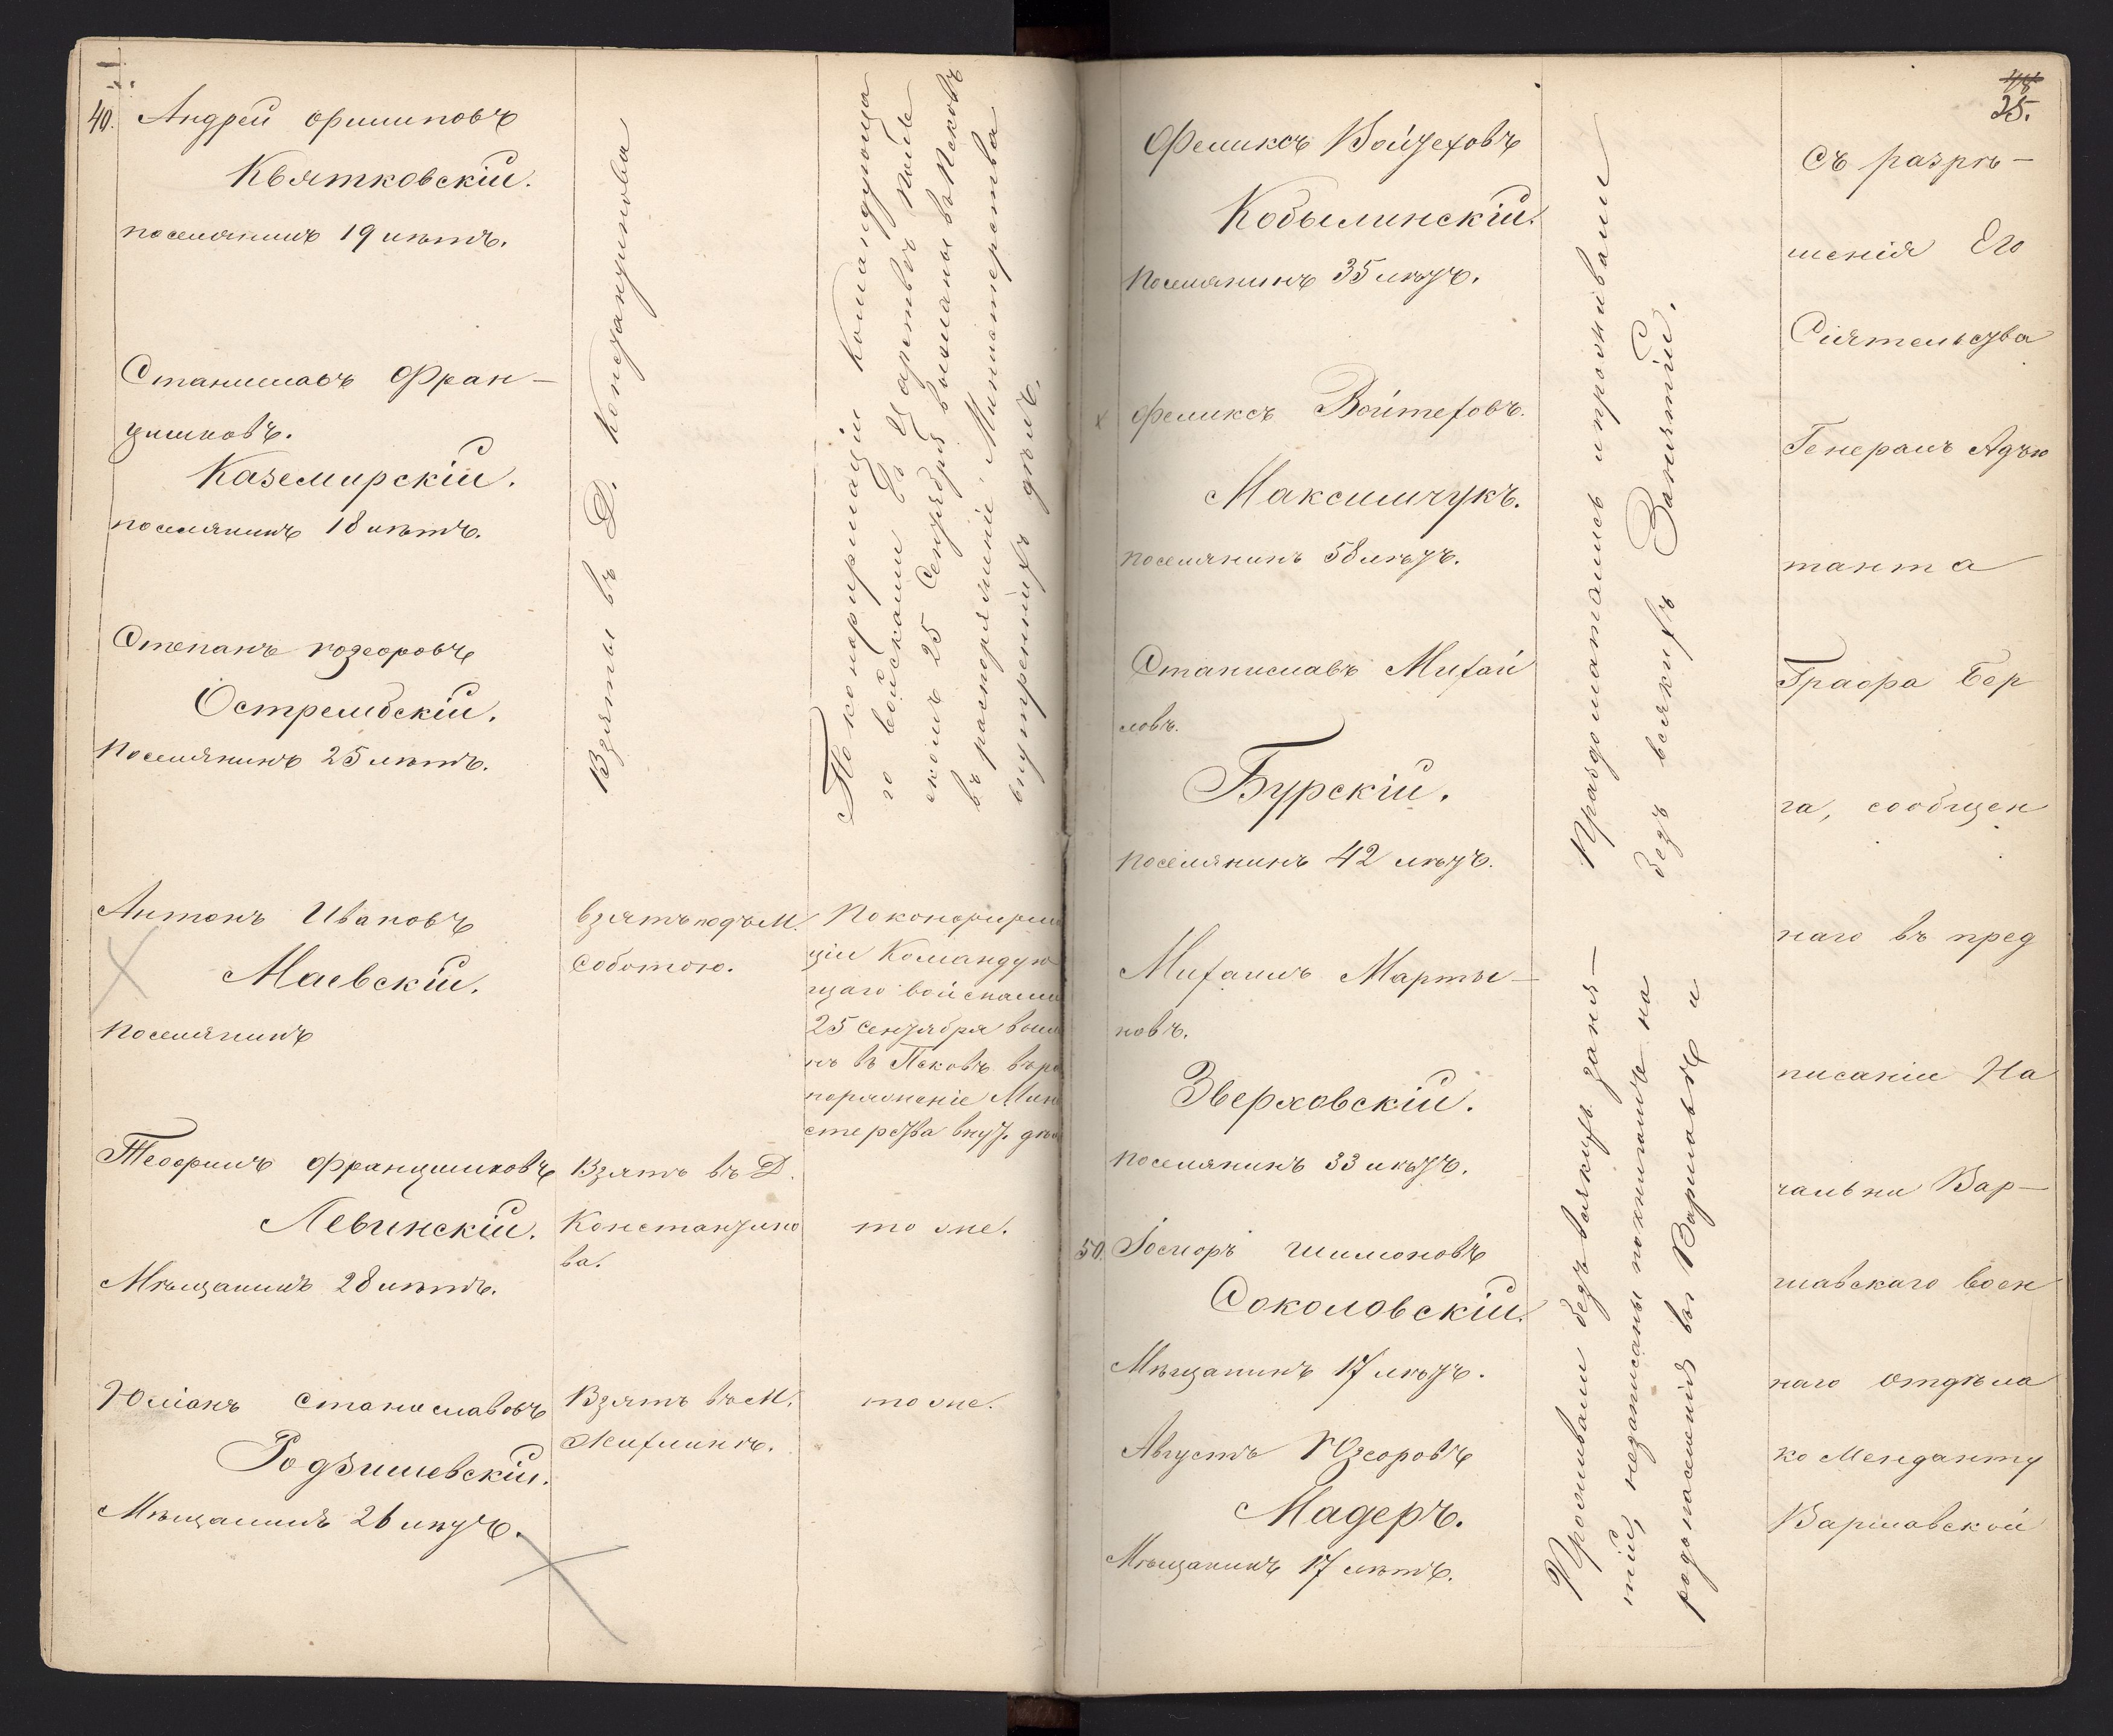 40. Андрей Филиповъ
Квятковскій.
поселянинъ 19 лѣтъ.
Станиславъ Фран-
цишковъ.
Каземирскій.
поселянинъ 18 лѣтъ.
Степанъ Юзефовъ
Острембскій.
Поселянинъ 25 лѣтъ.
Взяты въ Д. Констанцинова
По конфирмаціи Командующа
го войсками въ Царствѣ Поль
скомъ 25 Сентября высланы въ Псковъ
въ распоряженіе Министерства
внутреннихъ дѣлъ.
Антонъ Ивановъ
Маевскій.
Поселянинъ
взятъ подъ М.
Соботою.
По конфирма
ціи Командую
щаго войсками
25 Сентября высла
нъ въ Псковъ въ рас
поряженіе Мини
стерства внут. дѣлъ
Теофилъ Францишковъ
Левинскій.
Мѣщанинъ 28 лѣтъ.
Взятъ въ Д.
Константино
ва.
то же.
Юліанъ Станиславовъ
Родзишевскій.
Мѣщанинъ 26 лѣтъ.
Взятъ въ М.
Жихлинѣ.
то же.
25.
Феликсъ Войцеховъ
Кобылинскій.
Поселянинъ 35 лѣтъ.
Феликсъ Войтеховъ.
Максимчукъ.
поселянинъ 58 лѣтъ.
Станиславъ Михай
ловъ.
Бурскій.
поселянинъ 42 лѣтъ.
Михаилъ Марты-
новъ.
Зверховскій.
поселянинъ 33 лѣтъ.
50. Іосифъ Шимоновъ
Соколовскій.
Мѣщанинъ 17 лѣтъ.
Августъ Юзефовъ
Мадеръ.
Мѣщанинъ 17 лѣтъ.
Праздошатались и проживали
безъ всякихъ Занятій.
Проживали безъ всякихъ заня-
тій, незаписаны
народонаселенія въ Варшавѣ и
Съ разрѣ-
шенія Его
Сіятельства
Генералъ Адъю
танта
Графа Бер
га, сообщен
наго въ пред
писаніи На
чальни Вар-
шавскаго воен
наго отдѣла
коменданту
Варшавской